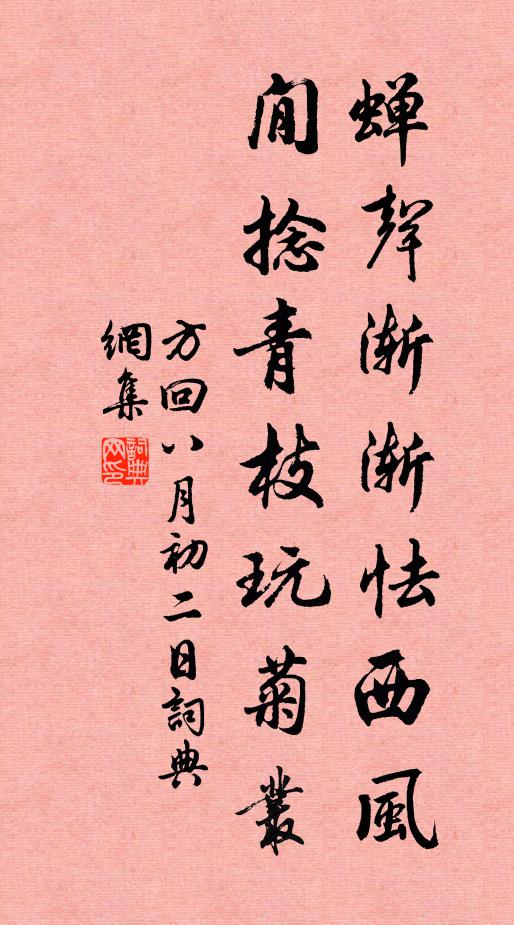 蟬聲漸漸怯西風
閒捻青枝玩菊叢
方回八月初二日詞典
網集
詞典
网印